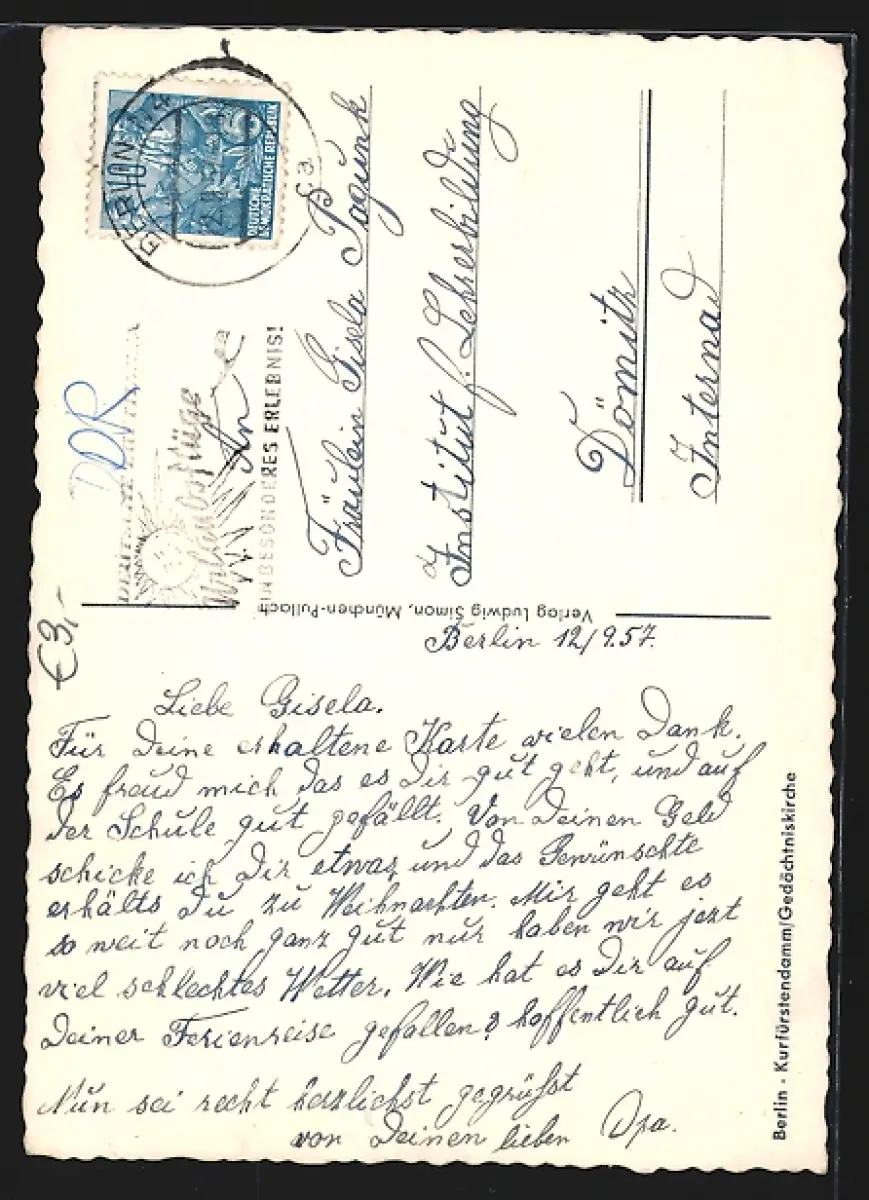 DEUTSCHE
DEMOKRATISCHE REPUBLIK
BERLIN N 4
ca
DDR
Urlaubsflüge
EIN BESONDERES ERLEBNIS!
An
Fräulein Gisela Pagunk
Institut f. Lehrerbildung
Dömitz
Internad
Verlag Ludwig Simon, München-Pullach
€3,-
Berlin 12/9.57.
Liebe Gisela.
Für Deine erhaltene Karte vielen Dank.
Es freud mich das es Dir gut geht, und auf
der Schule gut gefällt. Von Deinen Geld
schicke ich Dir etwas und das Gewünschte
erhälts Du zu Weihnachten. Mir geht es
so weit noch ganz gut nur haben wir jezt
viel schlechtes Wetter. Wie hat es Dir auf
Deiner Ferienreise gefallen? hoffentlich gut.
Nun sei recht herzlichst gegrüßt
von Deinen lieben Opa.
Berlin · Kurfürstendamm/Gedächtniskirche